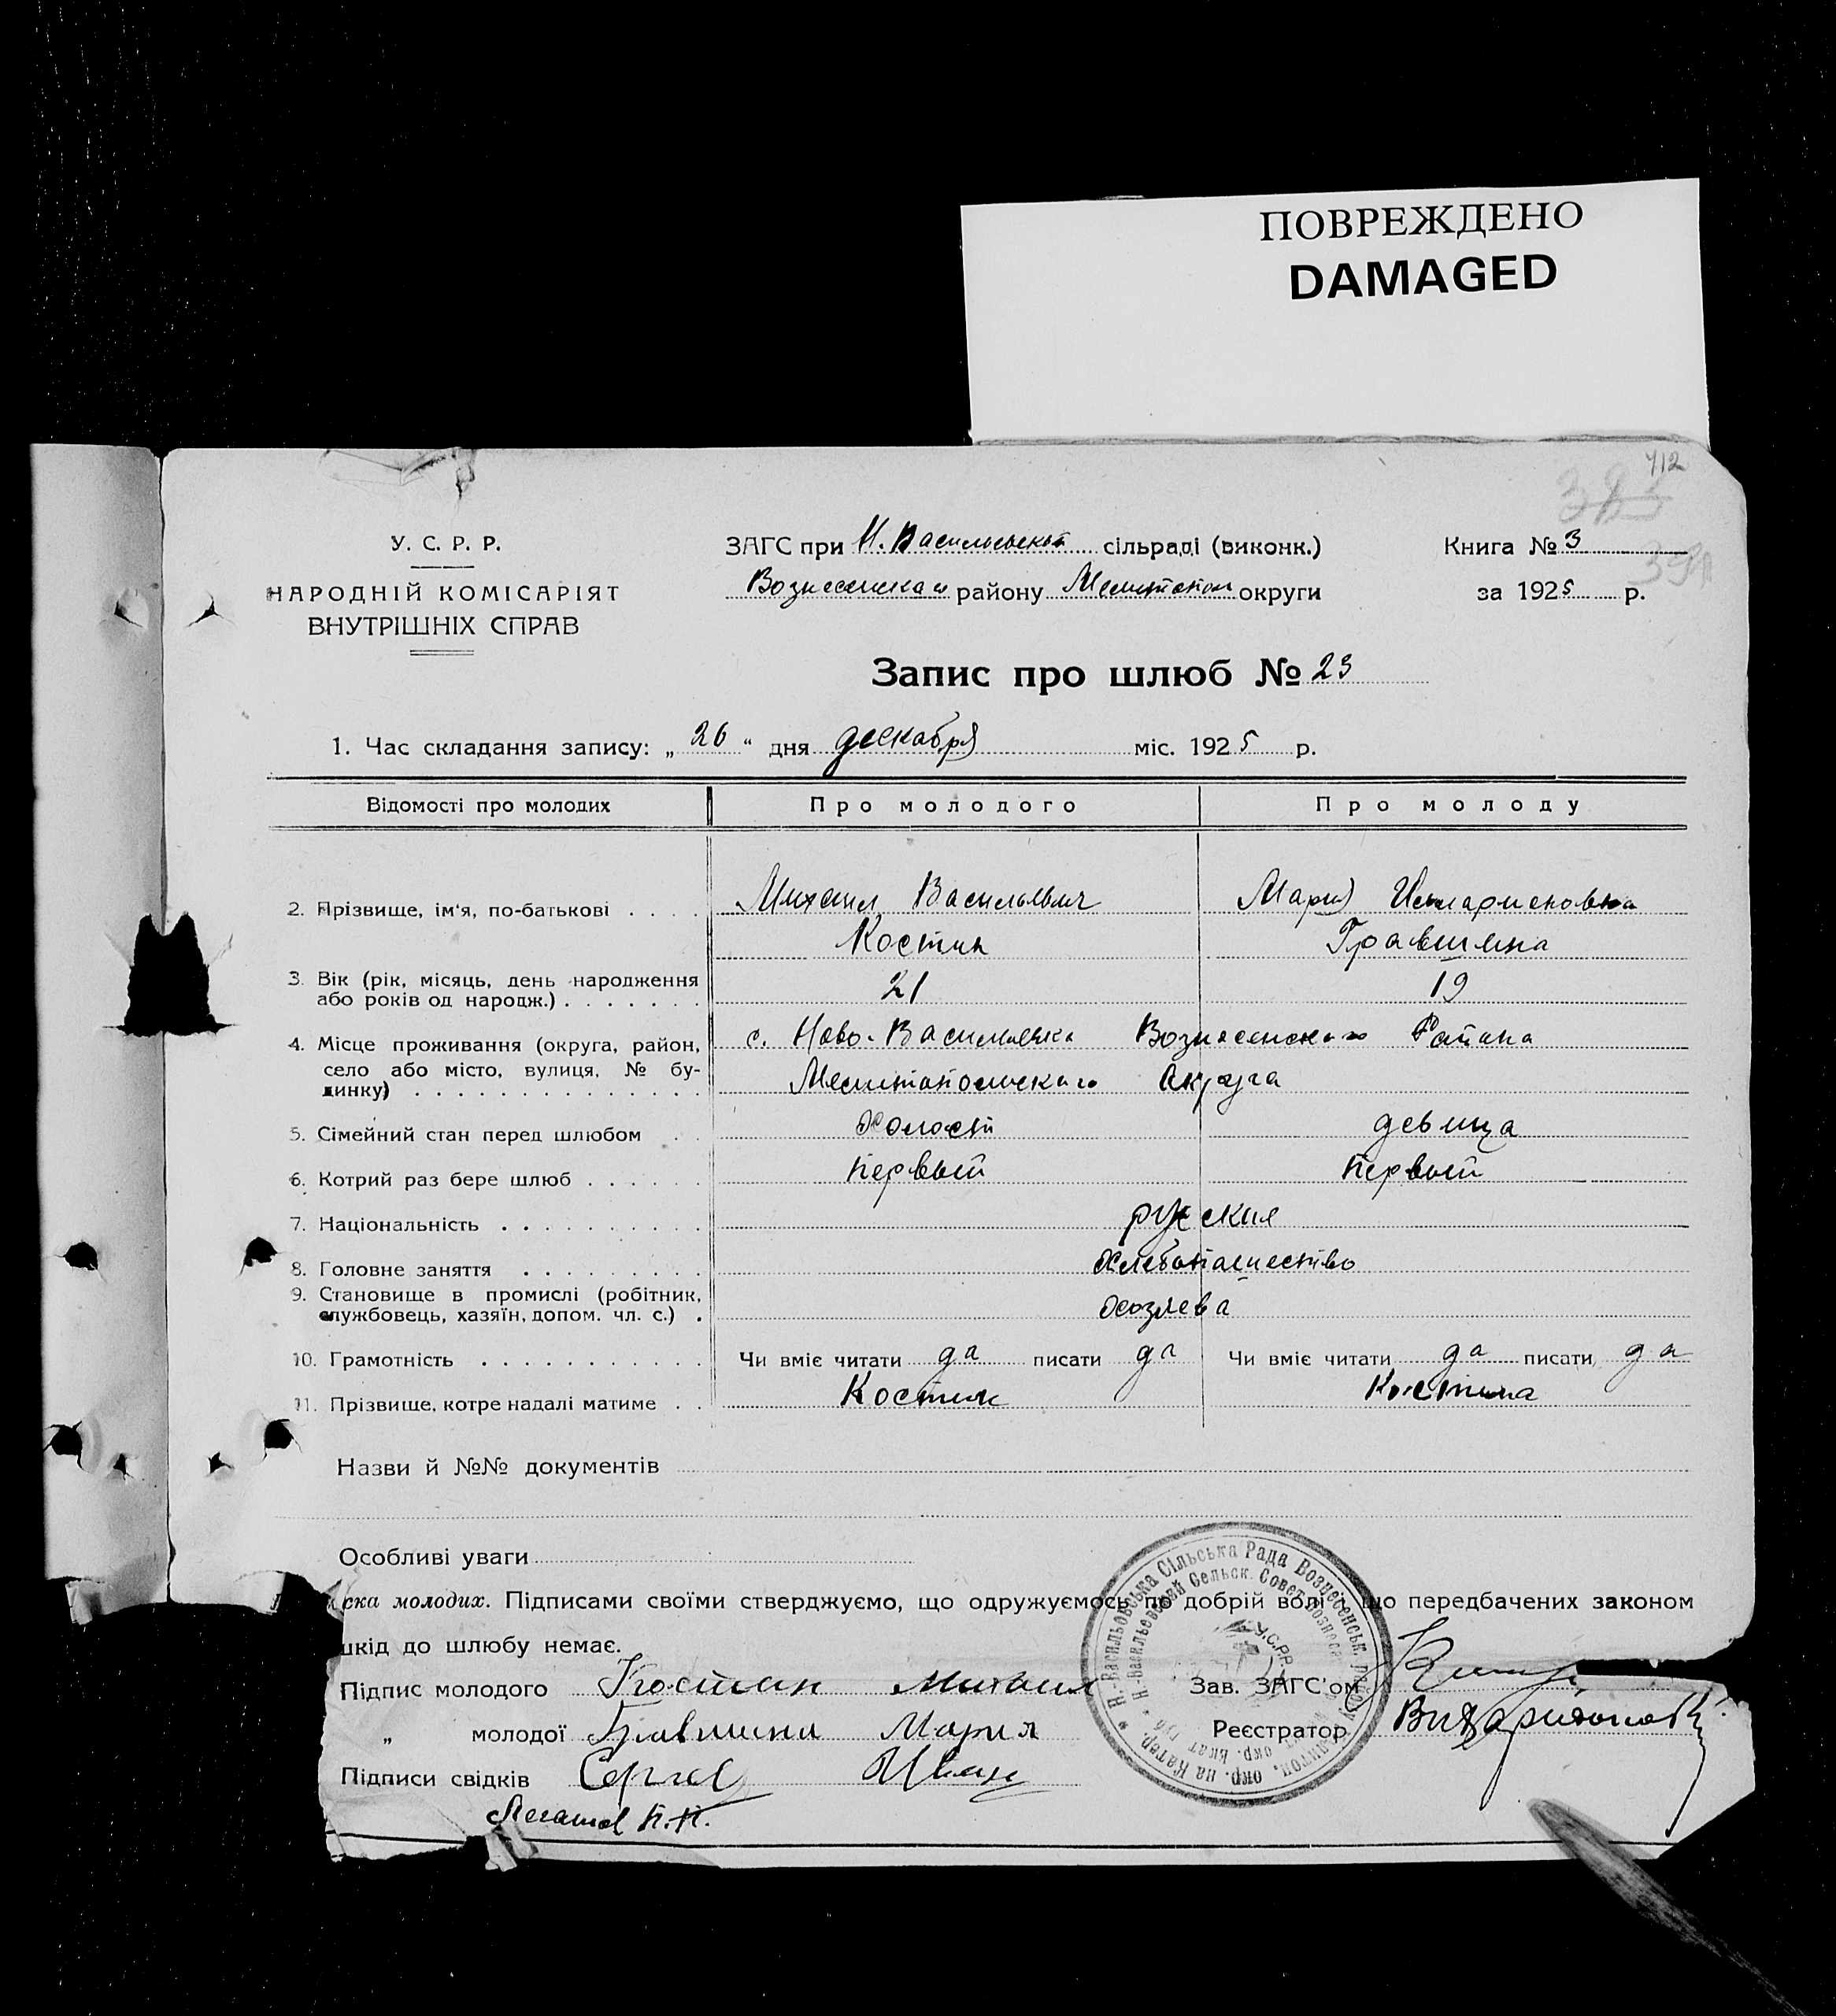 ПОВРЕЖДЕНО
DAMAGED
412
383
391
У. С. Р. Р.
НАРОДНІЙ КОМІСАРІЯТ
ВНУТРІШНІХ СПРАВ
ЗАГС при Н. Васильевской сільраді (виконк.)
району Мелитопол округи
Книга № 3
за 1925 р.
Запис про шлюб № 23
1. Час складання запису: „ 26 “ дня декабря міс. 1925 р.
Відомості про молодих Про молодого Про молоду
2. Прізвище, ім‘я, по-батькові . . . . Михаил Васильевич Мария Илларионовна
Костин
3. Вік (рік, місяць, день народження
або років од народж.) . . . . . . . 21 19
4. Місце проживання (округа, район, с. Ново-Васильевка Вознесенского Района
село або місто, вулиця, № бу-
динку) . . . . . . . . . . . . . . Мелитопольского Округа
5. Сімейний стан перед шлюбом . . Холост девица
6. Котрий раз бере шлюб . . . . . . первый первый
7. Національність . . . . . . . . . . русские
8. Головне заняття . . . . . . . . . Хлебопашество
9. Становище в промислі (робітник,
службовець, хазяїн, допом. чл. с.) . Хозяева
10. Грамотність . . . . . . . . . . . Чи вміє читати да писати да Чи вміє читати да писати да
11. Прізвище, котре надалі матиме . . Костин Костина
Назви й №№ документів
Особливі уваги
ска молодих. Підписами своїми стверджуємо, що одружуємось по добрій волі і що передбачених законом
шкід до шлюбу немає.
Підпис молодого Костин Михаил Зав. ЗАГС'ом
„ молодої Мария Реєстратор
Підписи свідків Иван
Н.-Васильовська Сільська Рада Вознесенськ.
Н.-Васильевский Сельск. Совет
У.С.Р.Р.